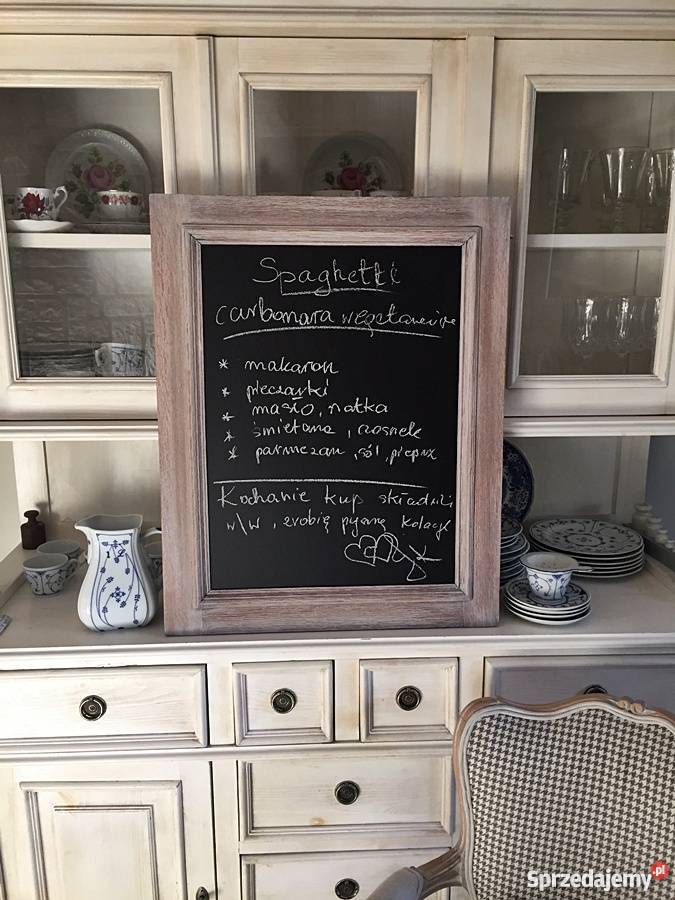 Spaghetti
carbonara wegetariańska
* makaron
* pieczarki
* masło, natka
* śmietana, czosnek
* parmezan, sól, pieprz
Kochanie kup składniki
w/w, zrobię pyszną kolację
Sprzedajemy.pl